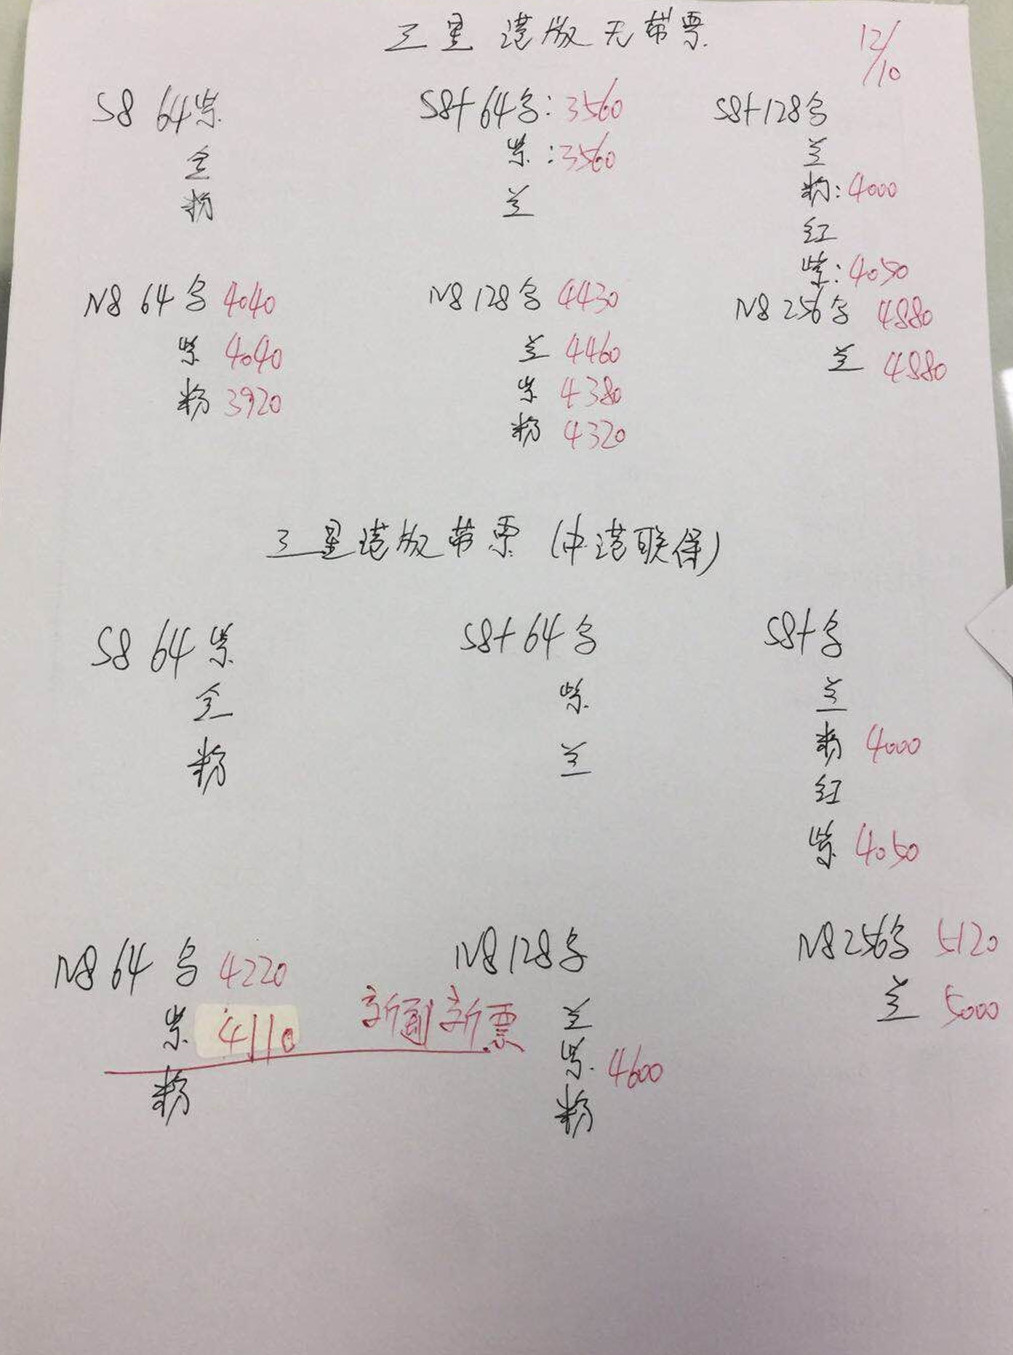 三星港版无带票
12/10
S8 64紫
金
粉
S8+ 64字:3560
紫:3560
兰
S8+128字
兰
粉:4000
红
紫:4050
N8 64字 4040
紫 4040
粉 3920
N8 128字 4430
兰 4460
紫 4380
粉 4320
N8 256字 4880
兰 4880
三星港版带票 (中港联保)
S8 64紫
金
粉
S8+ 64字
紫
兰
S8+字
兰
粉 4000
红
紫 4050
N8 64字 4220
紫 4110
粉
新到新票
N8 128字
兰
紫 4600
粉
N8 256字 5120
兰 5000